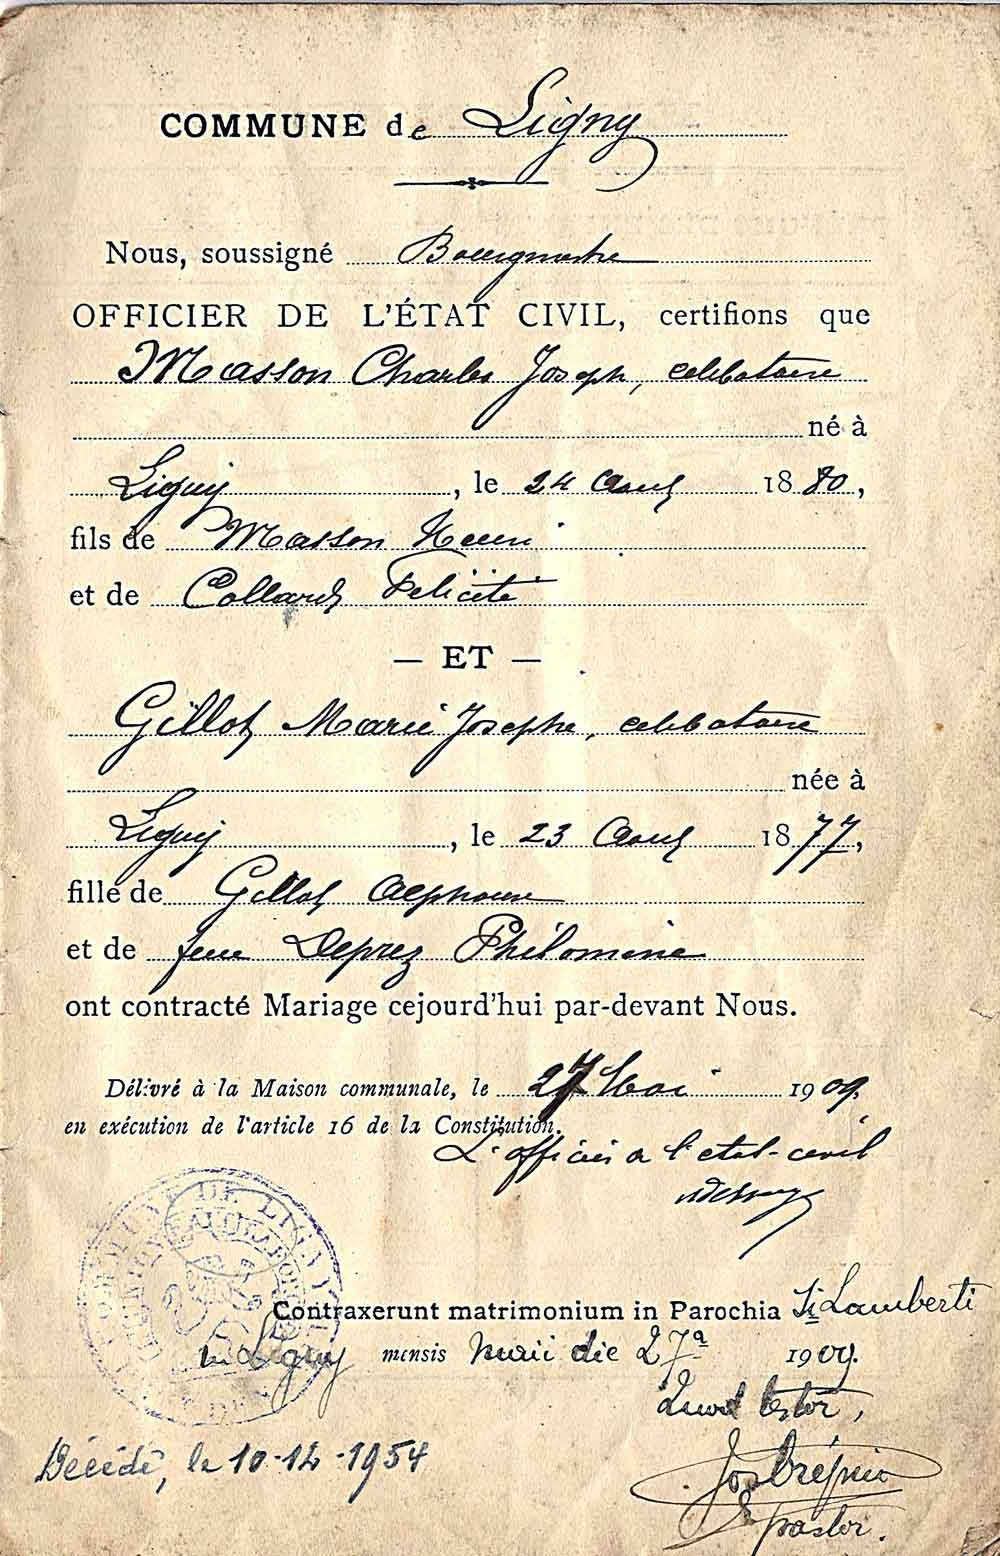 COMMUNE de Ligny
Nous, soussigné Bourgmestre
OFFICIER DE L'ÉTAT CIVIL, certifions que
Masson Charles Joseph, celibataire
né à
Ligny, le 24 Aout 1880,
fils de Masson Henri
et de Collard Felicité
— ET —
Gillot Marie Josephe, celibataire
née à
Ligny, le 23 Aout 1877,
fille de Gillot Alphonse
et de feue Deprez Philomène
ont contracté Mariage cejourd'hui par-devant Nous.
Délivré à la Maison communale, le 27 Mai 1909
en exécution de l'article 16 de la Constitution.
L'officier de l'etat-civil
COMMUNE DE LIGNY
Contraxerunt matrimonium in Parochia Sti Lamberti
in Ligny mensis maii die 27a 1909.
quod testor,
pastor.
Décédé, le 10-12-1954